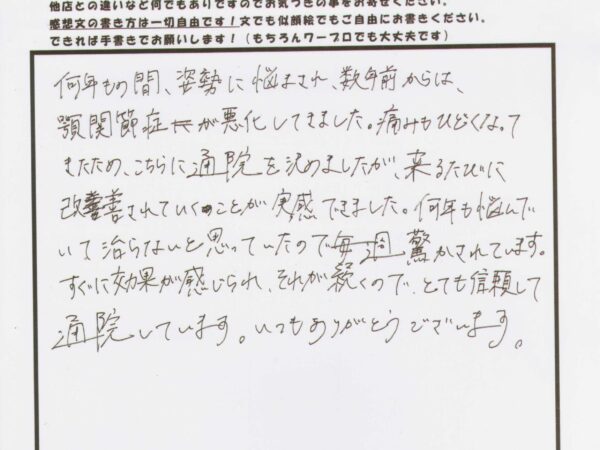 他店との違いなど何でもありですのでお気づきの事をお寄せください。
感想文の書き方は一切自由です！文でも似顔絵でもご自由にお書きください。
できれば手書きでお願いします！（もちろんワープロでも大丈夫です）
何年もの間、姿勢に悩まされ、数年前からは、
顎関節症が悪化してきました。痛みもひどくなって
きたため、こちらに通院を決めましたが、来るたびに
改善されていくことが実感できました。何年も悩んで
いて治らないと思っていたので毎週驚かされています。
すぐに効果が感じられ、それが続くので、とても信頼して
通院しています。いつもありがとうございます。